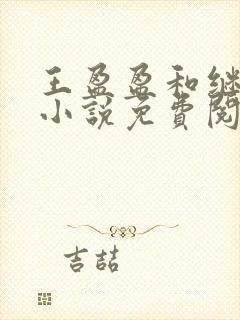 王盈盈和继
小說免費閱
吉喆